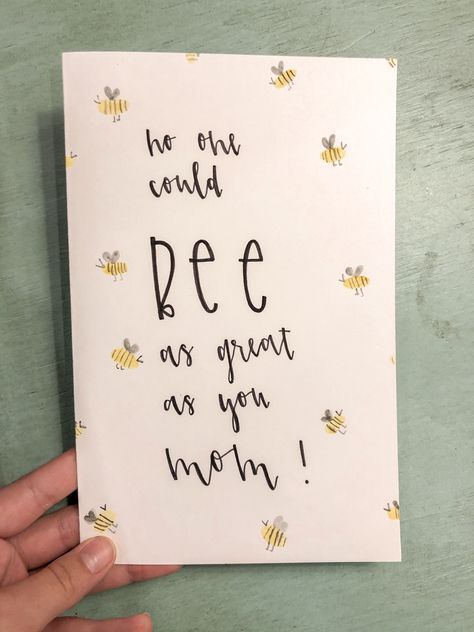 no one
could
BEE
as great
as you
mom!